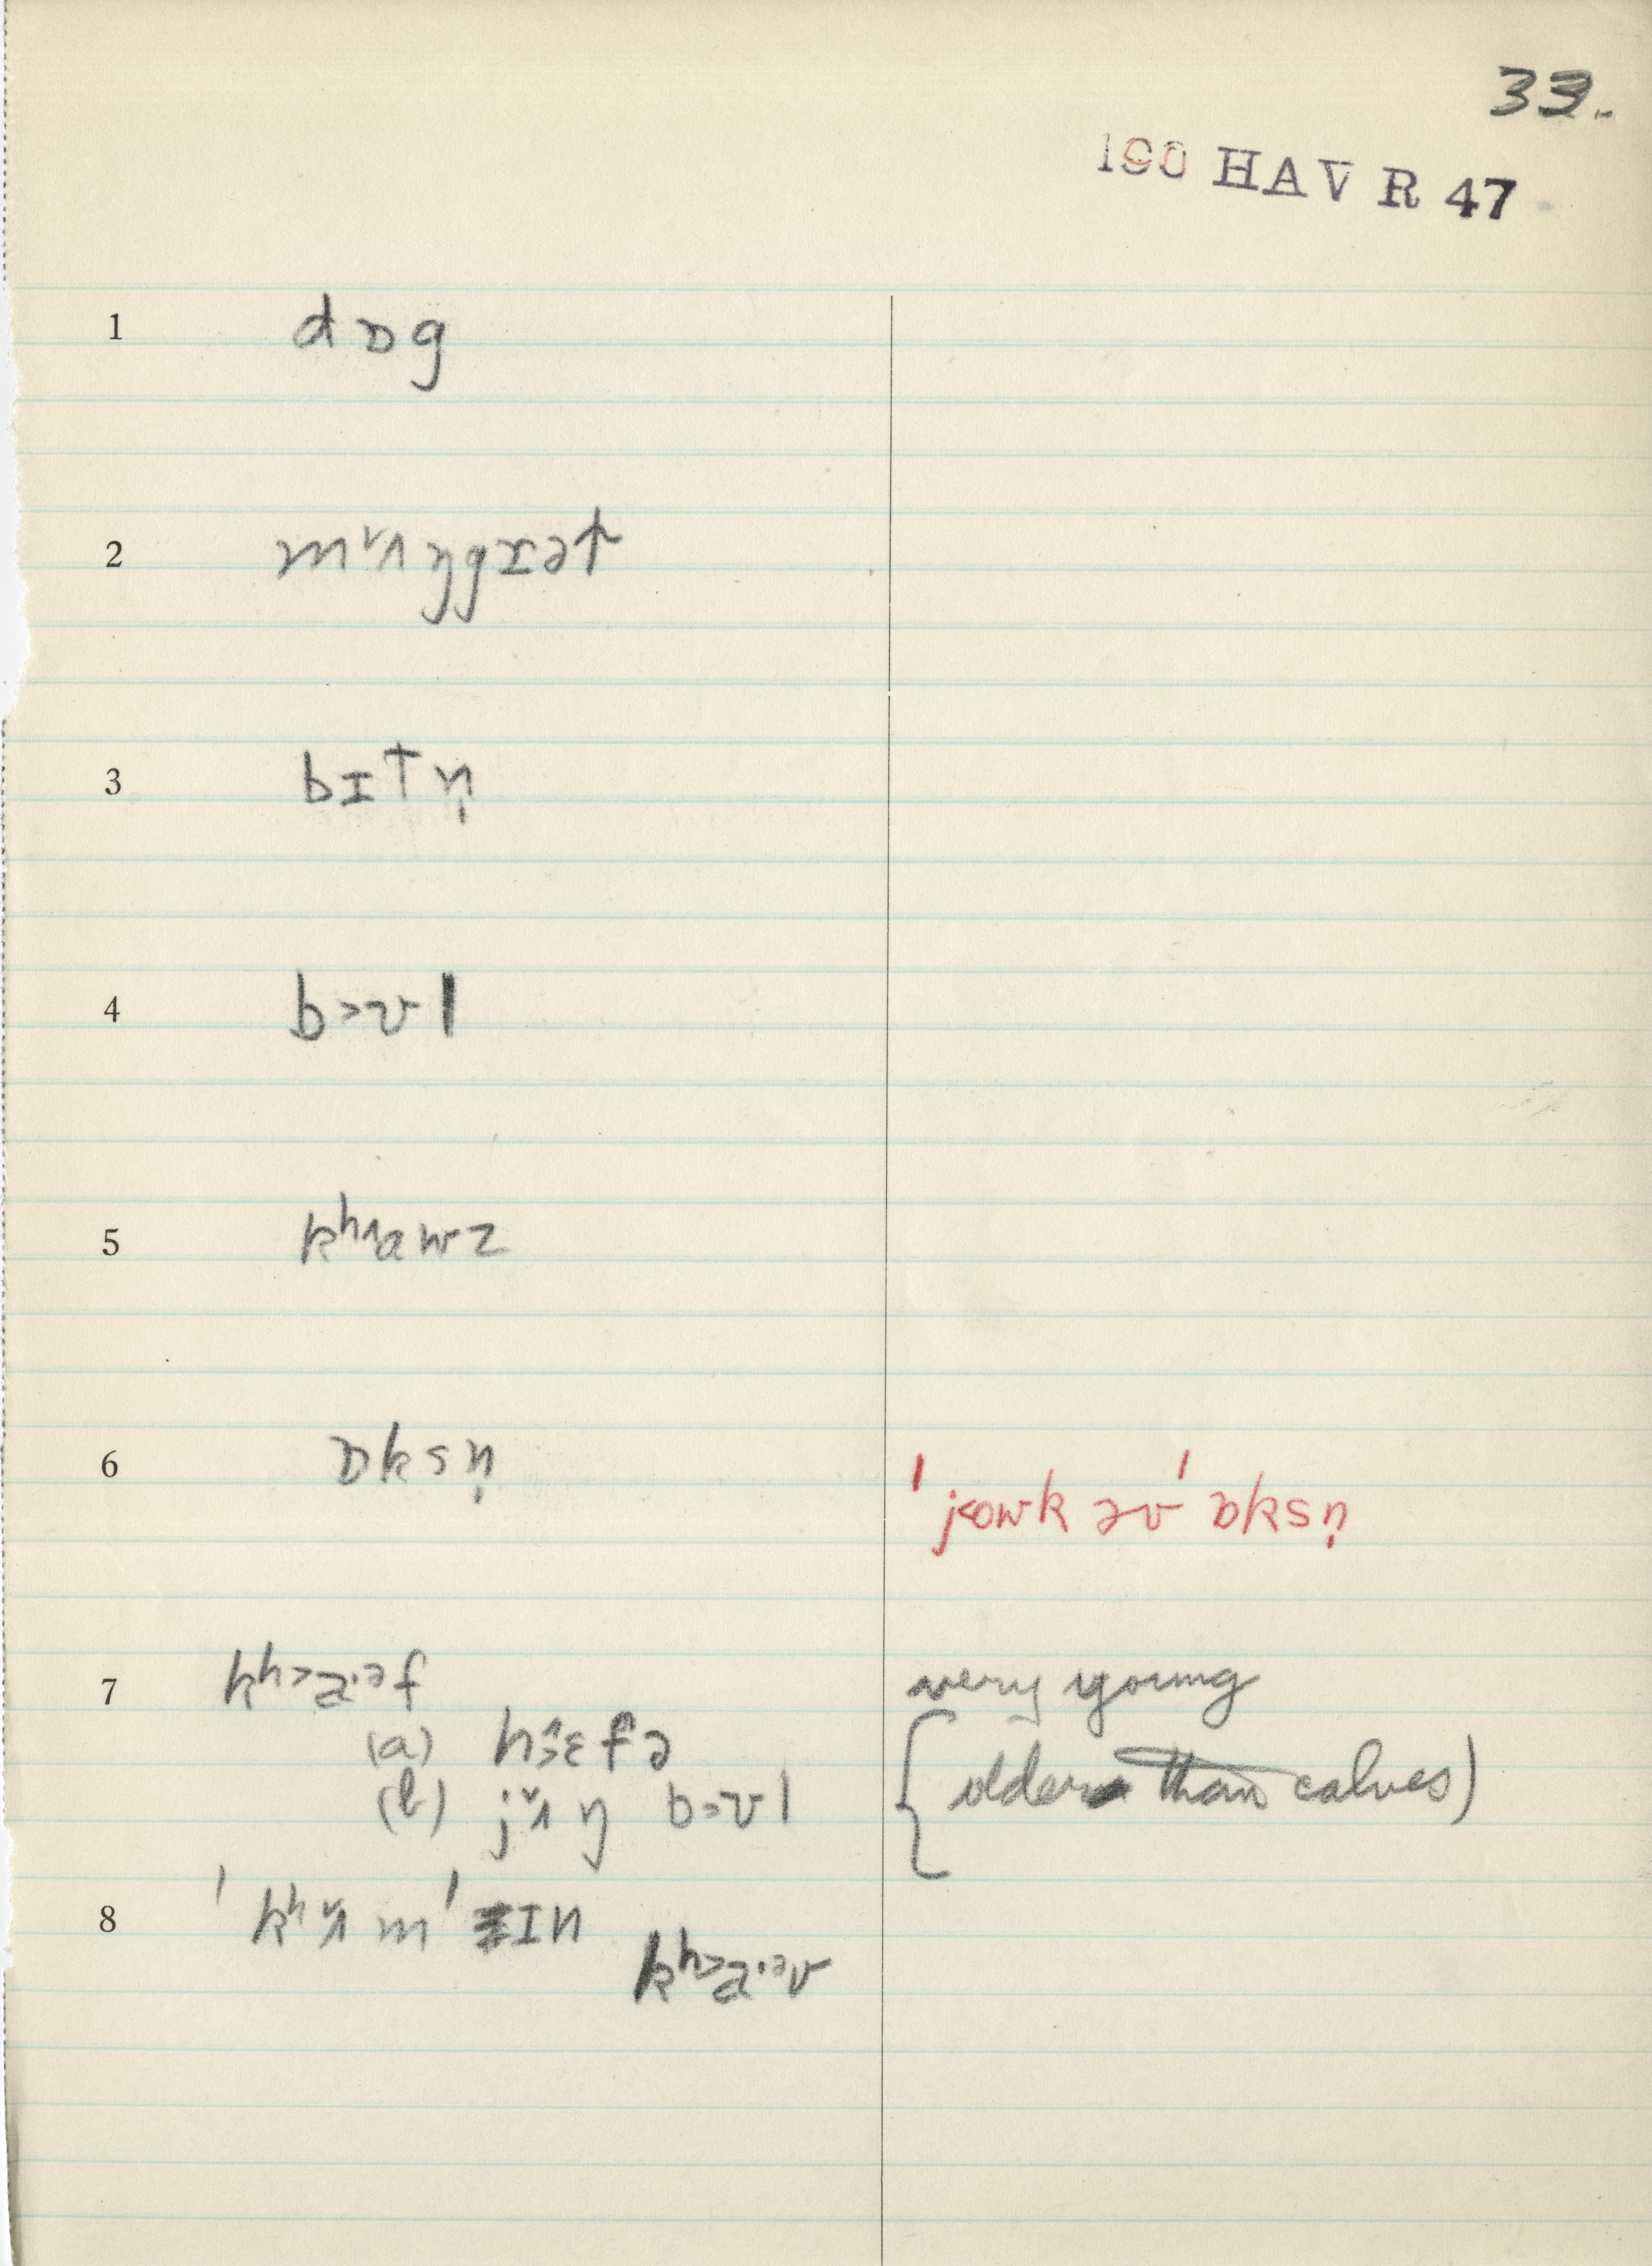 33.
190 HAV R 47
1 dɒg
2 mʌ̌ŋgrət
3 bɪtn̩
4 b˃ʊl
5 kʰ˄awz
6 ɒksn̩
ˈj˂owk əv ˈɒksn̩
7 kʰ˃a·ᵊf very young
(a) hɛ̂fə { older than calves)
(b) jʌ̌ŋ b˃ʊl
8 ˈkʰʌ̌m ˈɪn
kʰ˃a·ᵊv